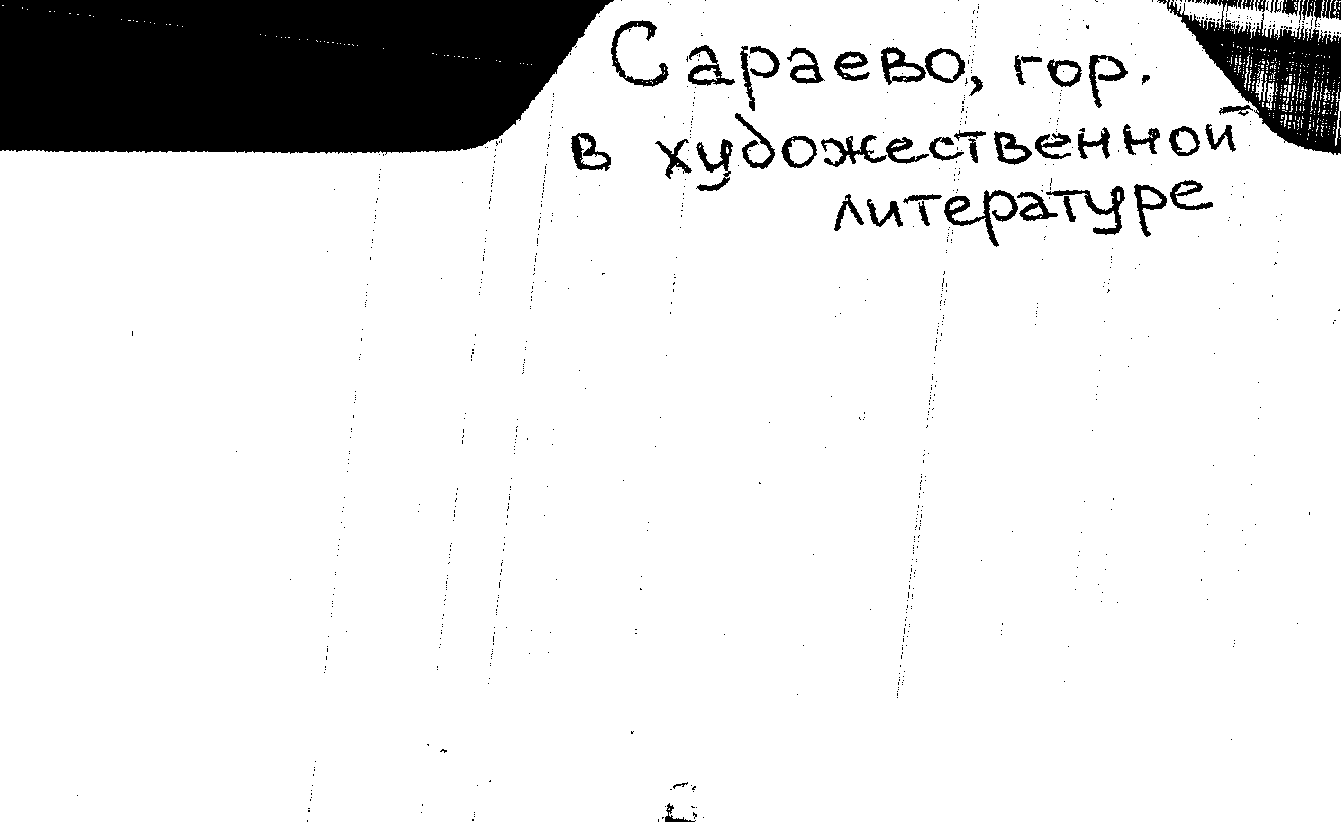 Сараево, гор.
в художественной
литературе